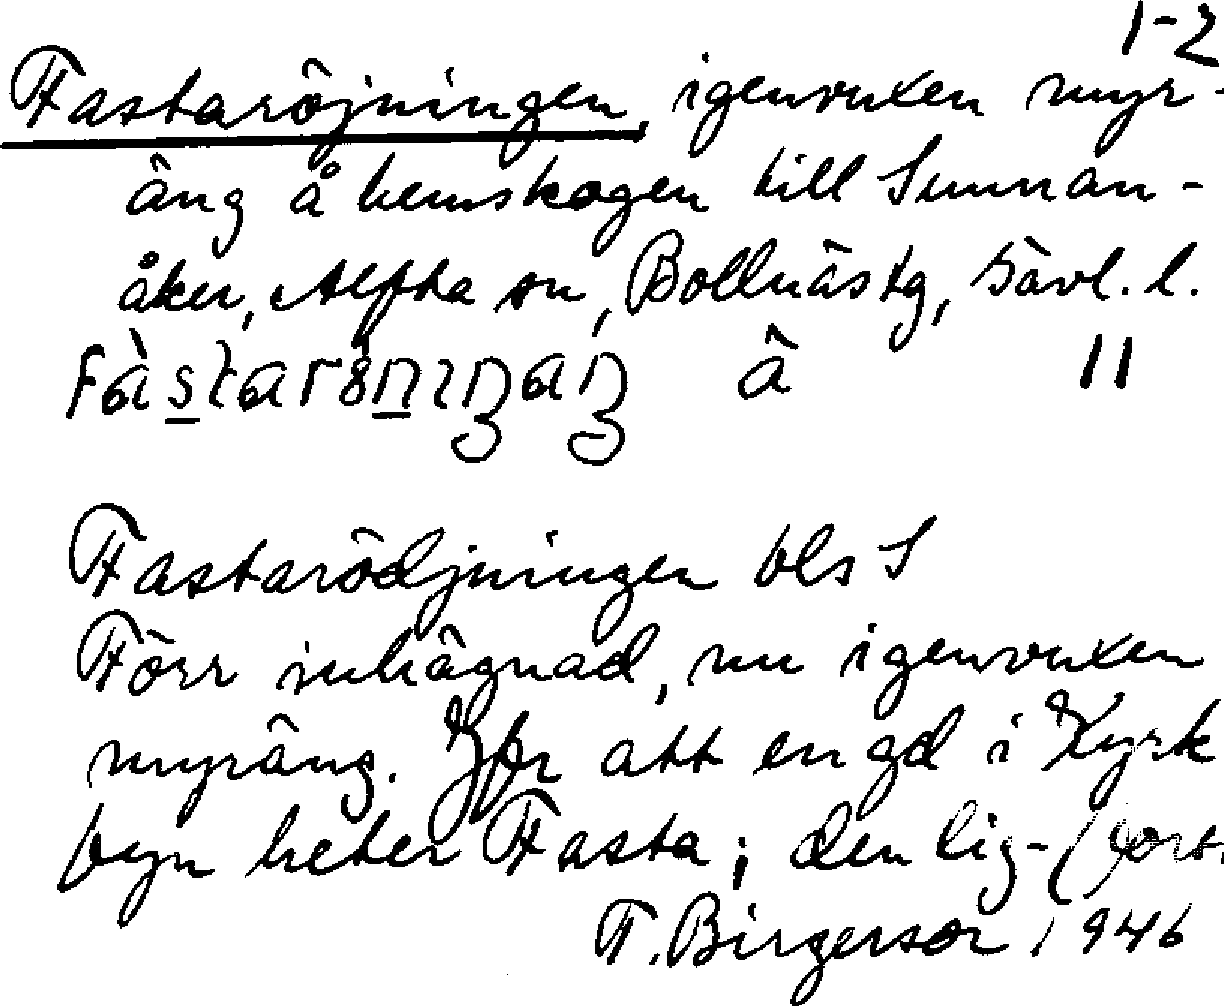 1-2
Fastaröjningen, igenvuxen myr-
äng å hemskogen till Sunnan-
åker, Alfta sn, Bollnästg, Gävl. l.
å 11
Fastarödjningen bls S
Förr inhägnad, nu igenvuxen
myräng. Jfr att en gd i Kyrk
byn heter Fasta; den lig- (forts.
F. Birgerson 1946